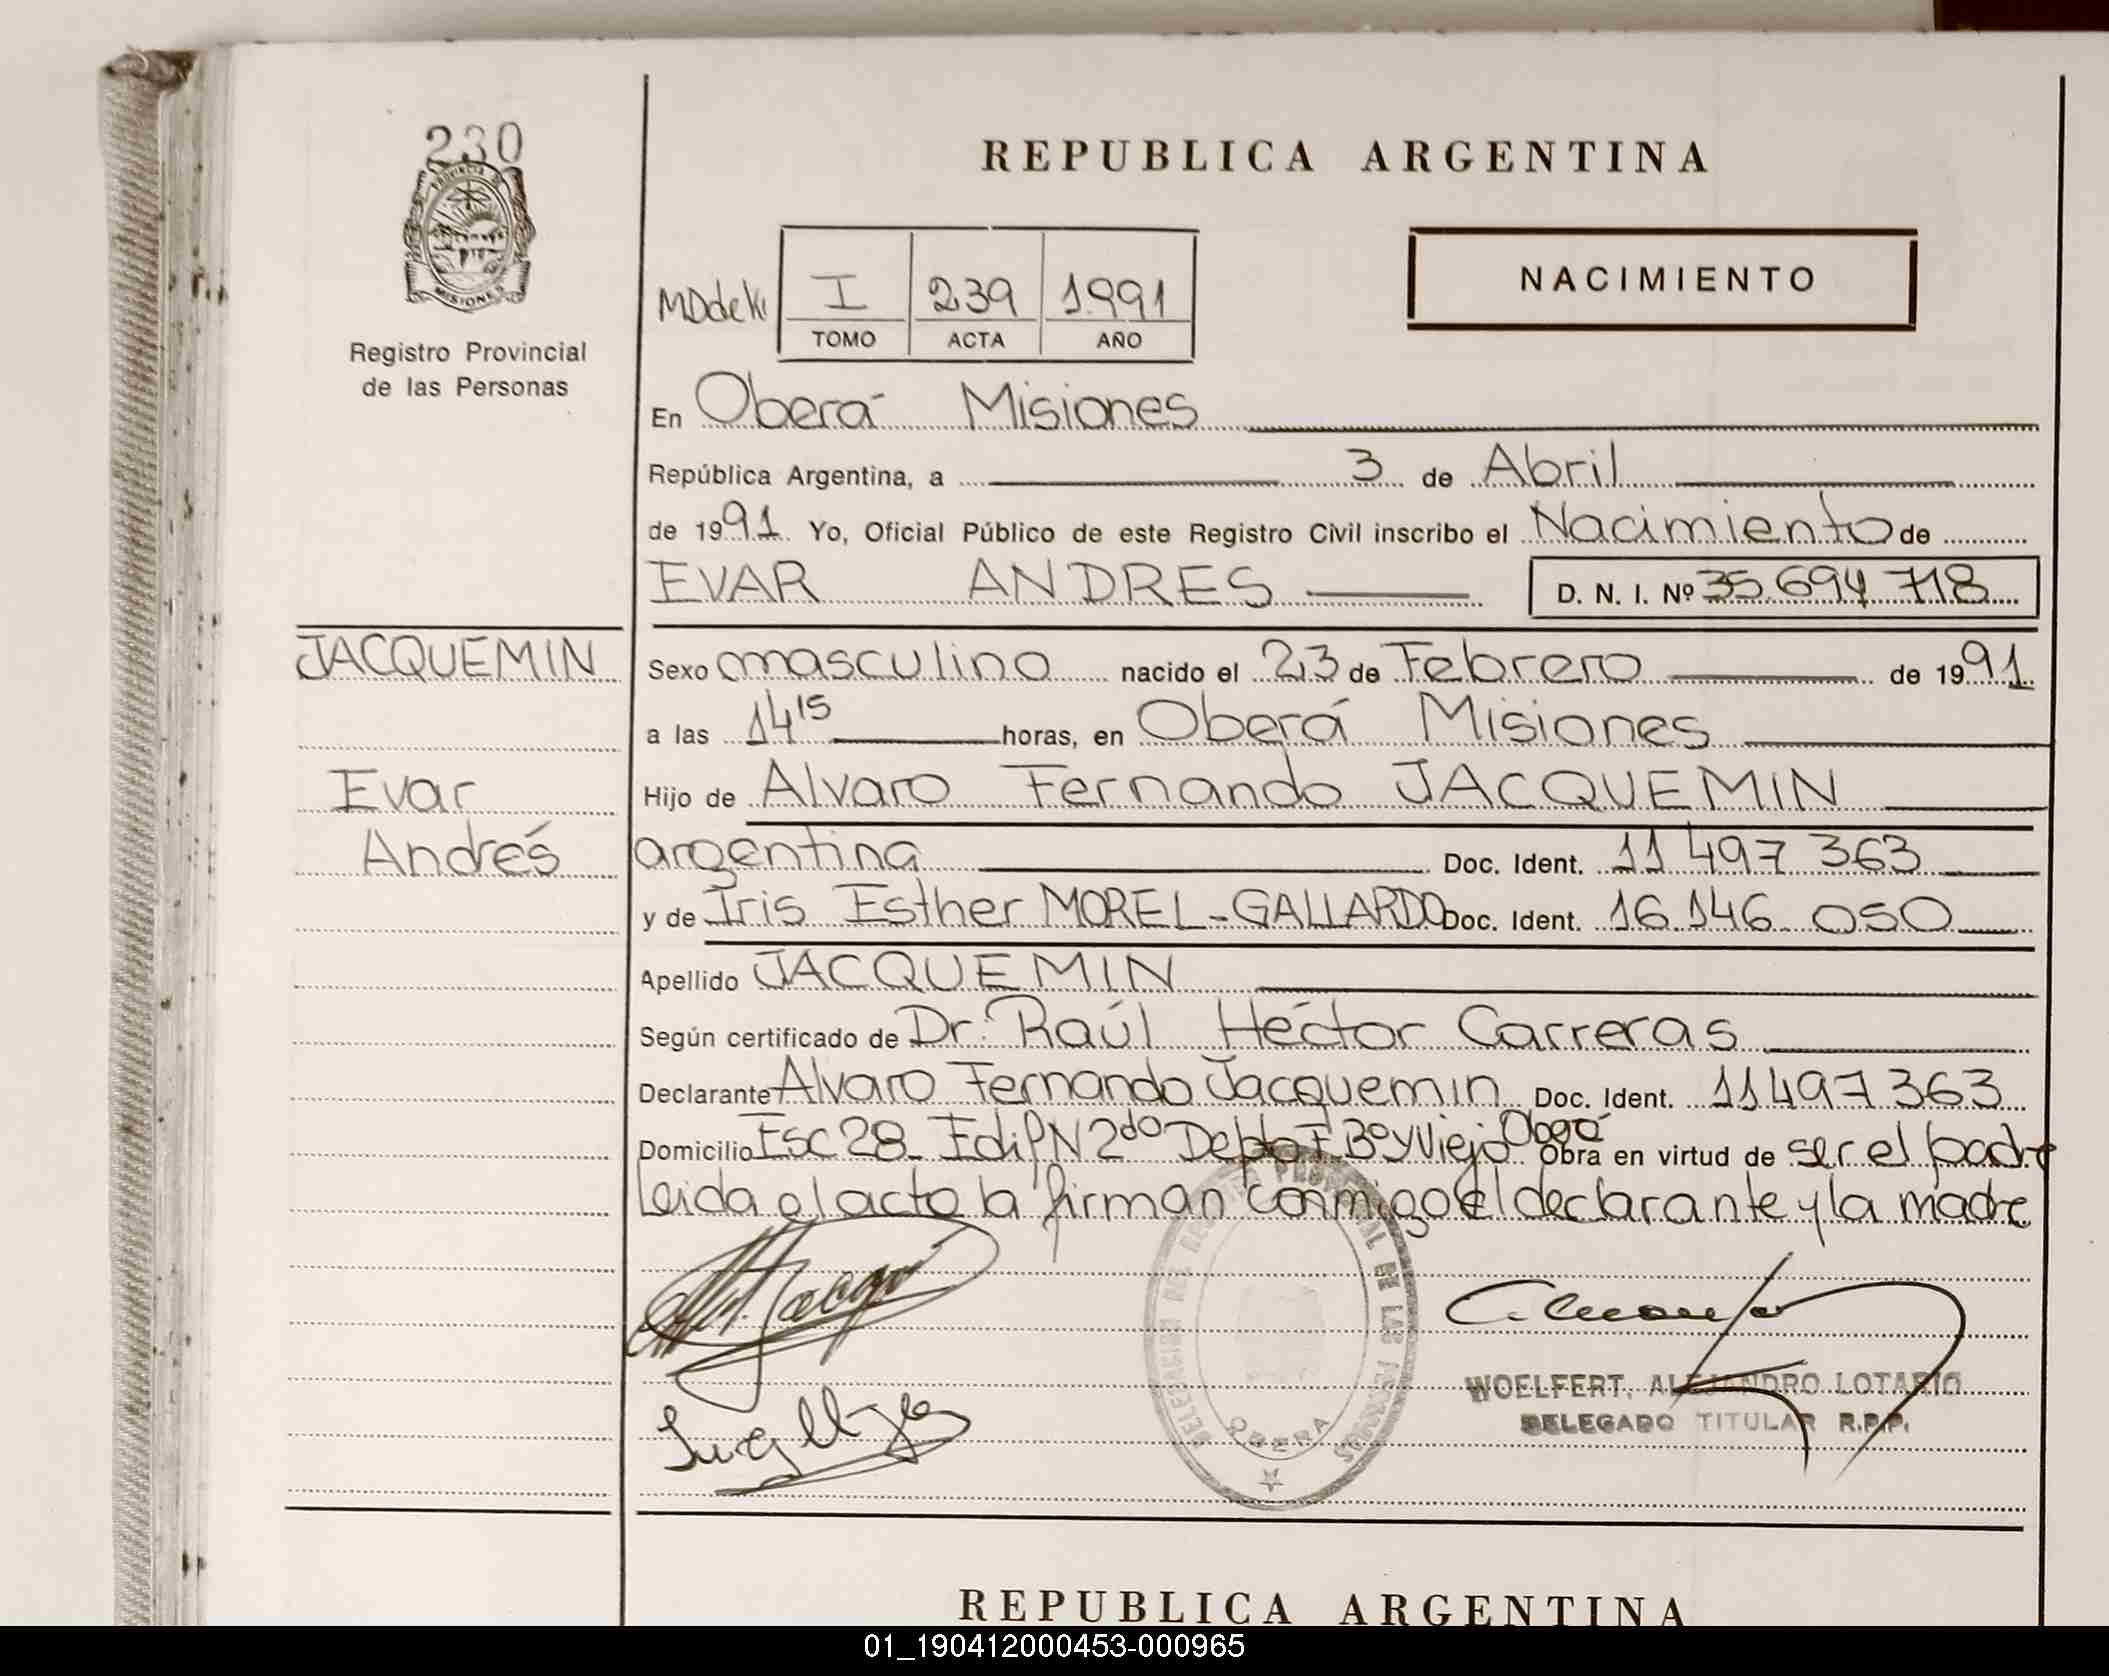 230
PROVINCIA DE
MISIONES
Registro Provincial
de las Personas
REPUBLICA ARGENTINA
I 239 1991
TOMO ACTA AÑO
NACIMIENTO
En Oberá Misiones
República Argentina, a 3 de Abril
de 1991 Yo, Oficial Público de este Registro Civil inscribo el Nacimiento de
EVAR ANDRES D. N. I. Nº 35.694.718
JACQUEMIN
Evar
Andrés
Sexo masculino nacido el 23 de Febrero de 1991
a las 14 15 horas, en Oberá Misiones
Hijo de Alvaro Fernando JACQUEMIN
argentina Doc. Ident. 11 497 363
y de Iris Esther MOREL-GALLARDO Doc. Ident. 16.146.050
Apellido JACQUEMIN
Según certificado de Dr. Raúl Héctor Carreras
Declarante Alvaro Fernando Jacquemin Doc. Ident. 11497363
Domicilio Esc 28 Edif N 2do Depto F Bº Y Viejo Obra en virtud de ser el padre
Leida el acto la firman conmigo el declarante y la madre
DELEGACION DEL REGISTRO PROVINCIAL DE LAS PERSONAS
OBERA
WOELFERT, ALEJANDRO LOTARIO
DELEGADO TITULAR R.P.P.
REPUBLICA ARGENTINA
01_190412000453-000965